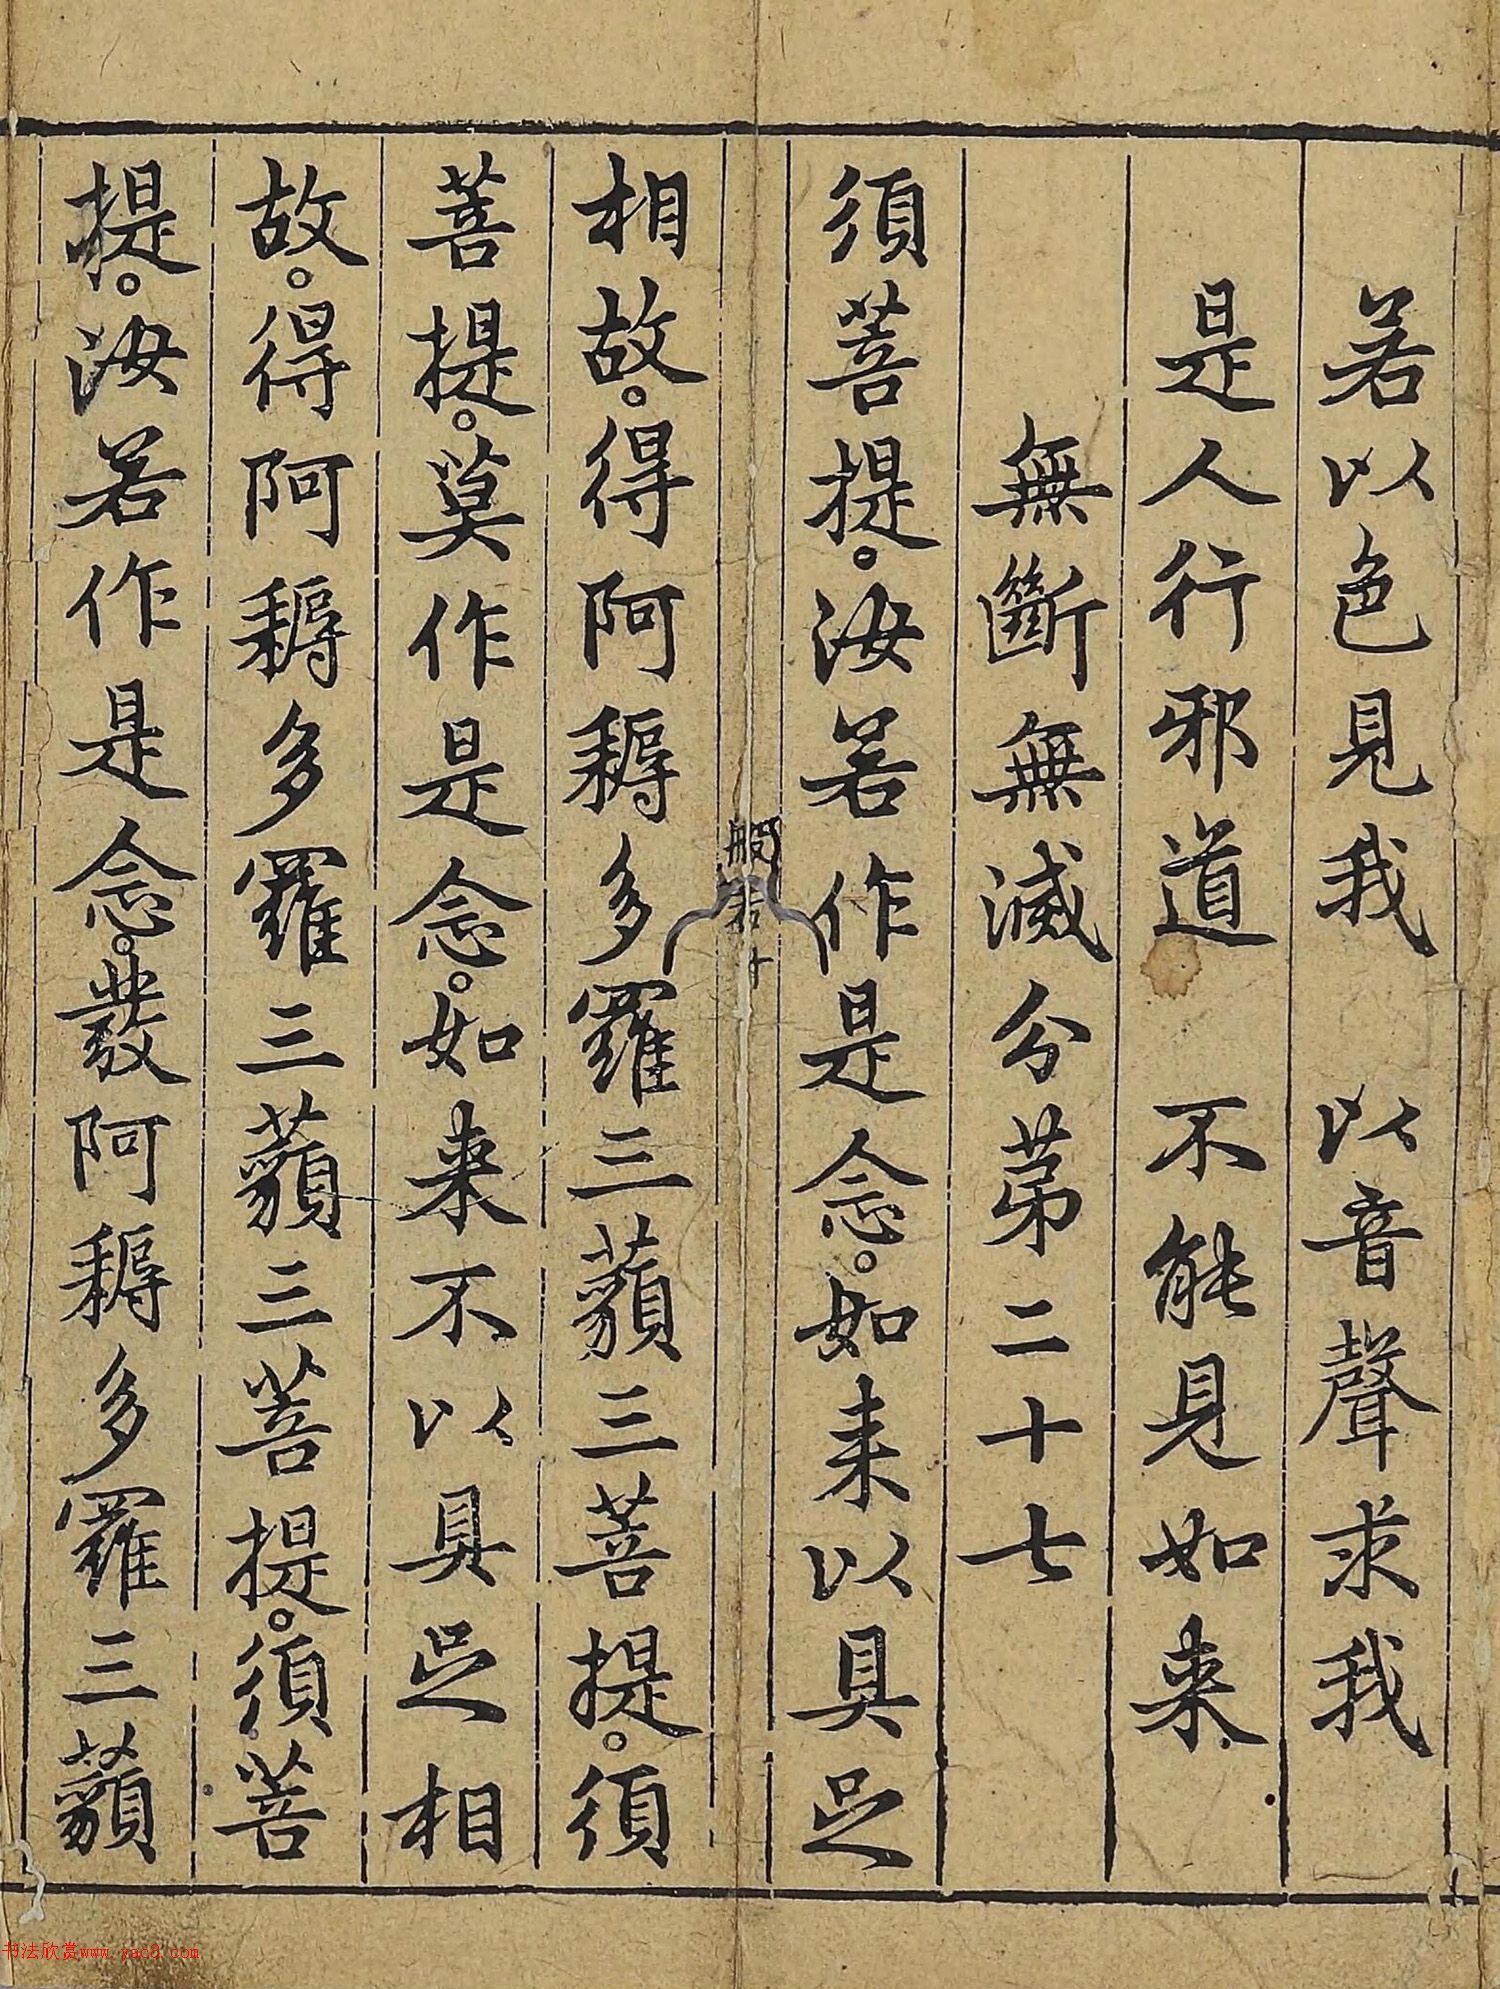 若以色見我　以音聲求我
是人行邪道　不能見如来
無斷無滅分第二十七
須菩提。汝若作是念。如来以具足
相故。得阿耨多羅三藐三菩提。須
菩提。莫作是念。如来不以具足相
故。得阿耨多羅三藐三菩提。須菩
提。汝若作是念。發阿耨多羅三藐
般若
书法欣赏www.yac8.com